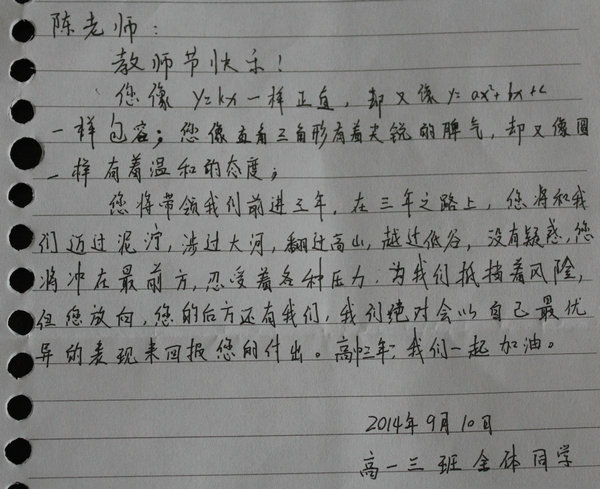 陈老师：
教师节快乐！
您像 y=kx 一样正直，却又像 y=ax²+bx+c
一样包容；您像直角三角形有着尖锐的脾气，却又像圆
一样有着温和的态度；
您将带领我们前进三年，在三年之路上，您将和我
们迈过泥泞，涉过大河，翻过高山，越过低谷，没有疑惑，您
将冲在最前方，忍受着各种压力，为我们抵挡着风险，
但您放向，您的后方还有我们，我们绝对会以自己最优
异的表现来回报您的付出。高中三年，我们一起加油。
2014年9月10日
高一三班全体同学